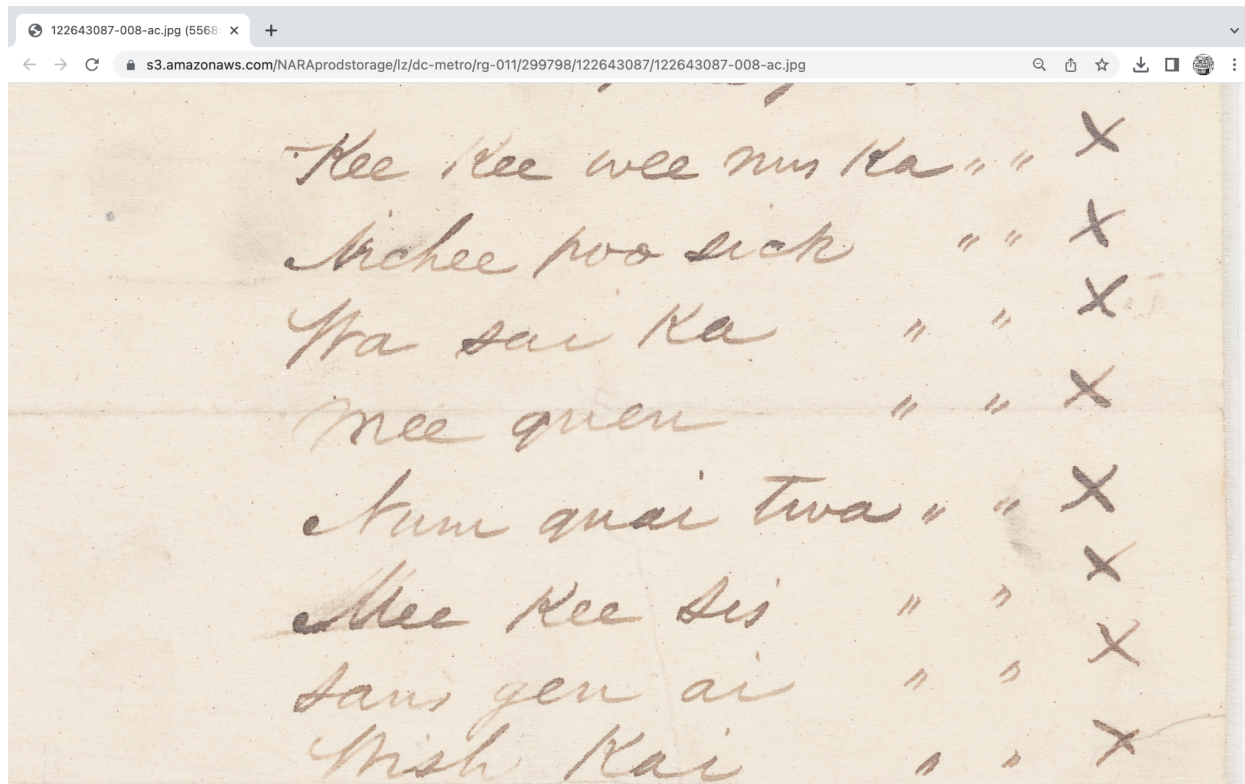 122643087-008-ac.jpg (5568
s3.amazonaws.com/NARAprodstorage/lz/dc-metro/rg-011/299798/122643087/122643087-008-ac.jpg
Kee Kee wee nus Ka " " X
Nichee poo sick " " X
Wa sai Ka " " X
Mee quen " " X
Num quai twa " " X
Mee Kee sis " " X
Saus gen ai " " X
Wish Kai " " X